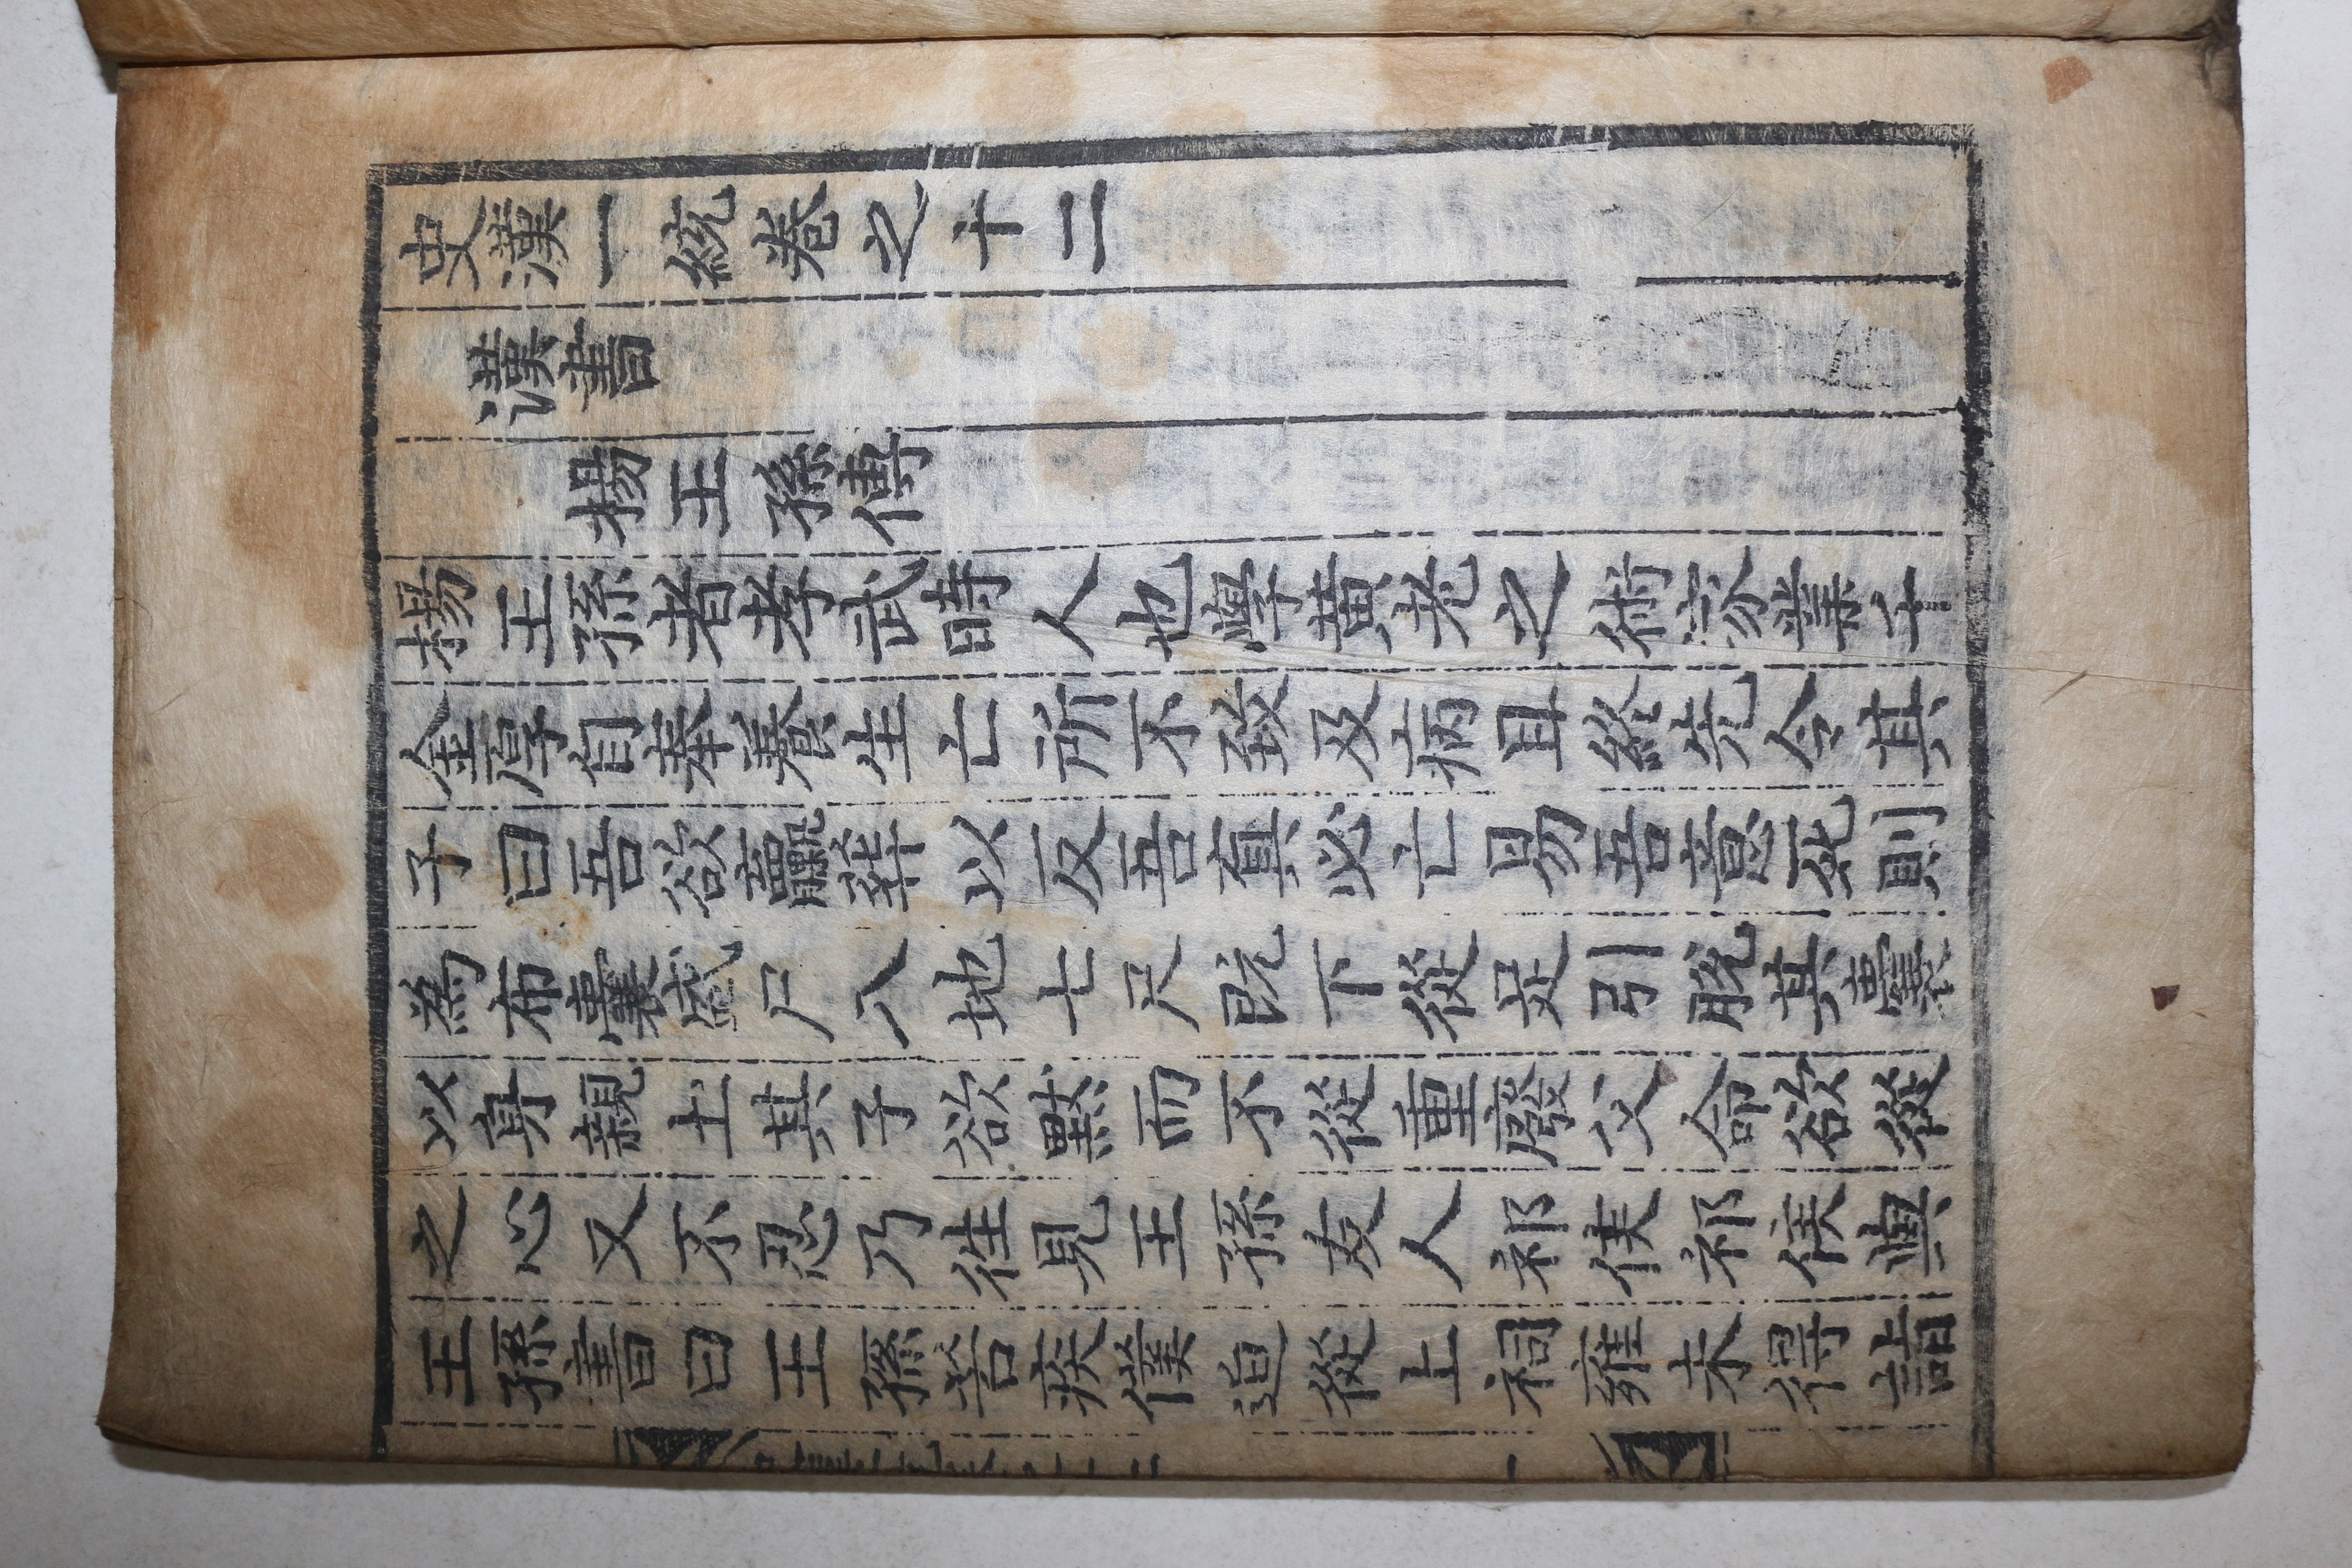 史漢一統卷之十二
漢書
楊王孫傳
楊王孫者孝武時人也學黃老之術家業千
金厚自奉養生亡所不致及病且終先令其
子曰吾欲臝葬以反吾眞必亡易吾意死則
爲布囊盛尸入地七尺旣下從足引脫其囊
以身親土其子欲默而不從重廢父命欲從
之心又不忍乃往見王孫友人祁侯祁侯與
王孫書曰王孫苦疾僕迫從上祠雍未得詣